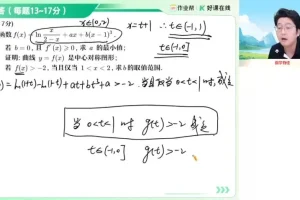 (每题13-17分)
作业帮 好课在线
x∈(0,2) x=t+1 ∴t∈(-1,1)
函数 f(x) = ln x/(2-x) + ax + b(x-1)³.
t∈(-1,0]
若 b=0, 且 f'(x)≥0, 求 a 的最小值;
证明: 曲线 y=f(x) 是中心对称图形;
若 f(x)>-2, 当且仅当 1<x<2, 求 b 的取值范围.
)=ln(1+t)-ln(1-t)+at+bt³+a>-2. 当且仅当 0<t<1 时, 成立
当 0<t<1 时 g(t)>-2 成立
t∈(-1,0] g(t)>-2